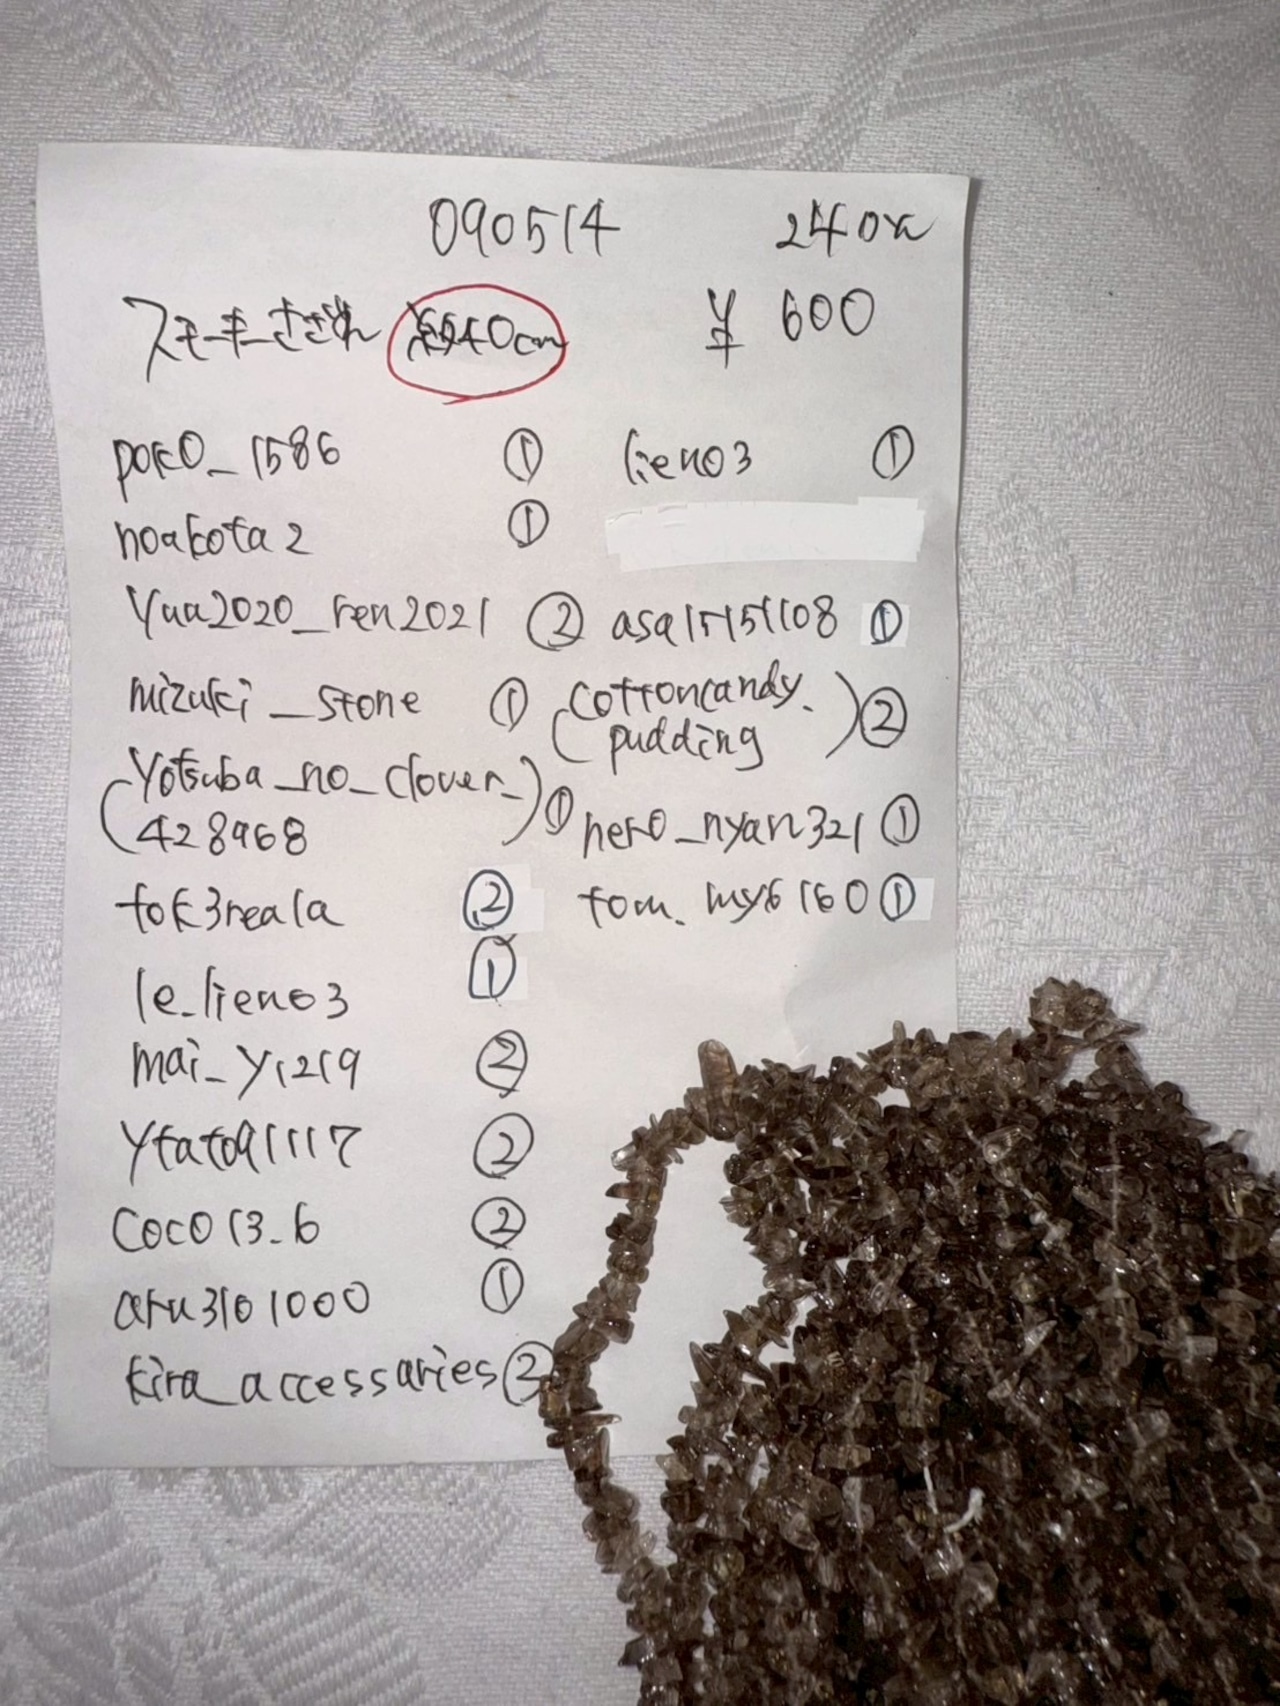 090514 240m
スモーキーさざれ 約40cm ¥600
poko_1586 ①
noakota2 ①
yua2020_ren2021 ②
mizuki_stone ①
(yotsuba_no_clover_
428968) ①
tok3reala ②
le_lieno3 ①
mai_y1219 ②
ytato91117 ②
coco13_6 ②
aru3101000 ①
kira_accessaries ②
lieno3 ①
asa15151108 ①
(cottoncandy.
pudding) ②
nero_nyan321 ①
tom.my6160 ①